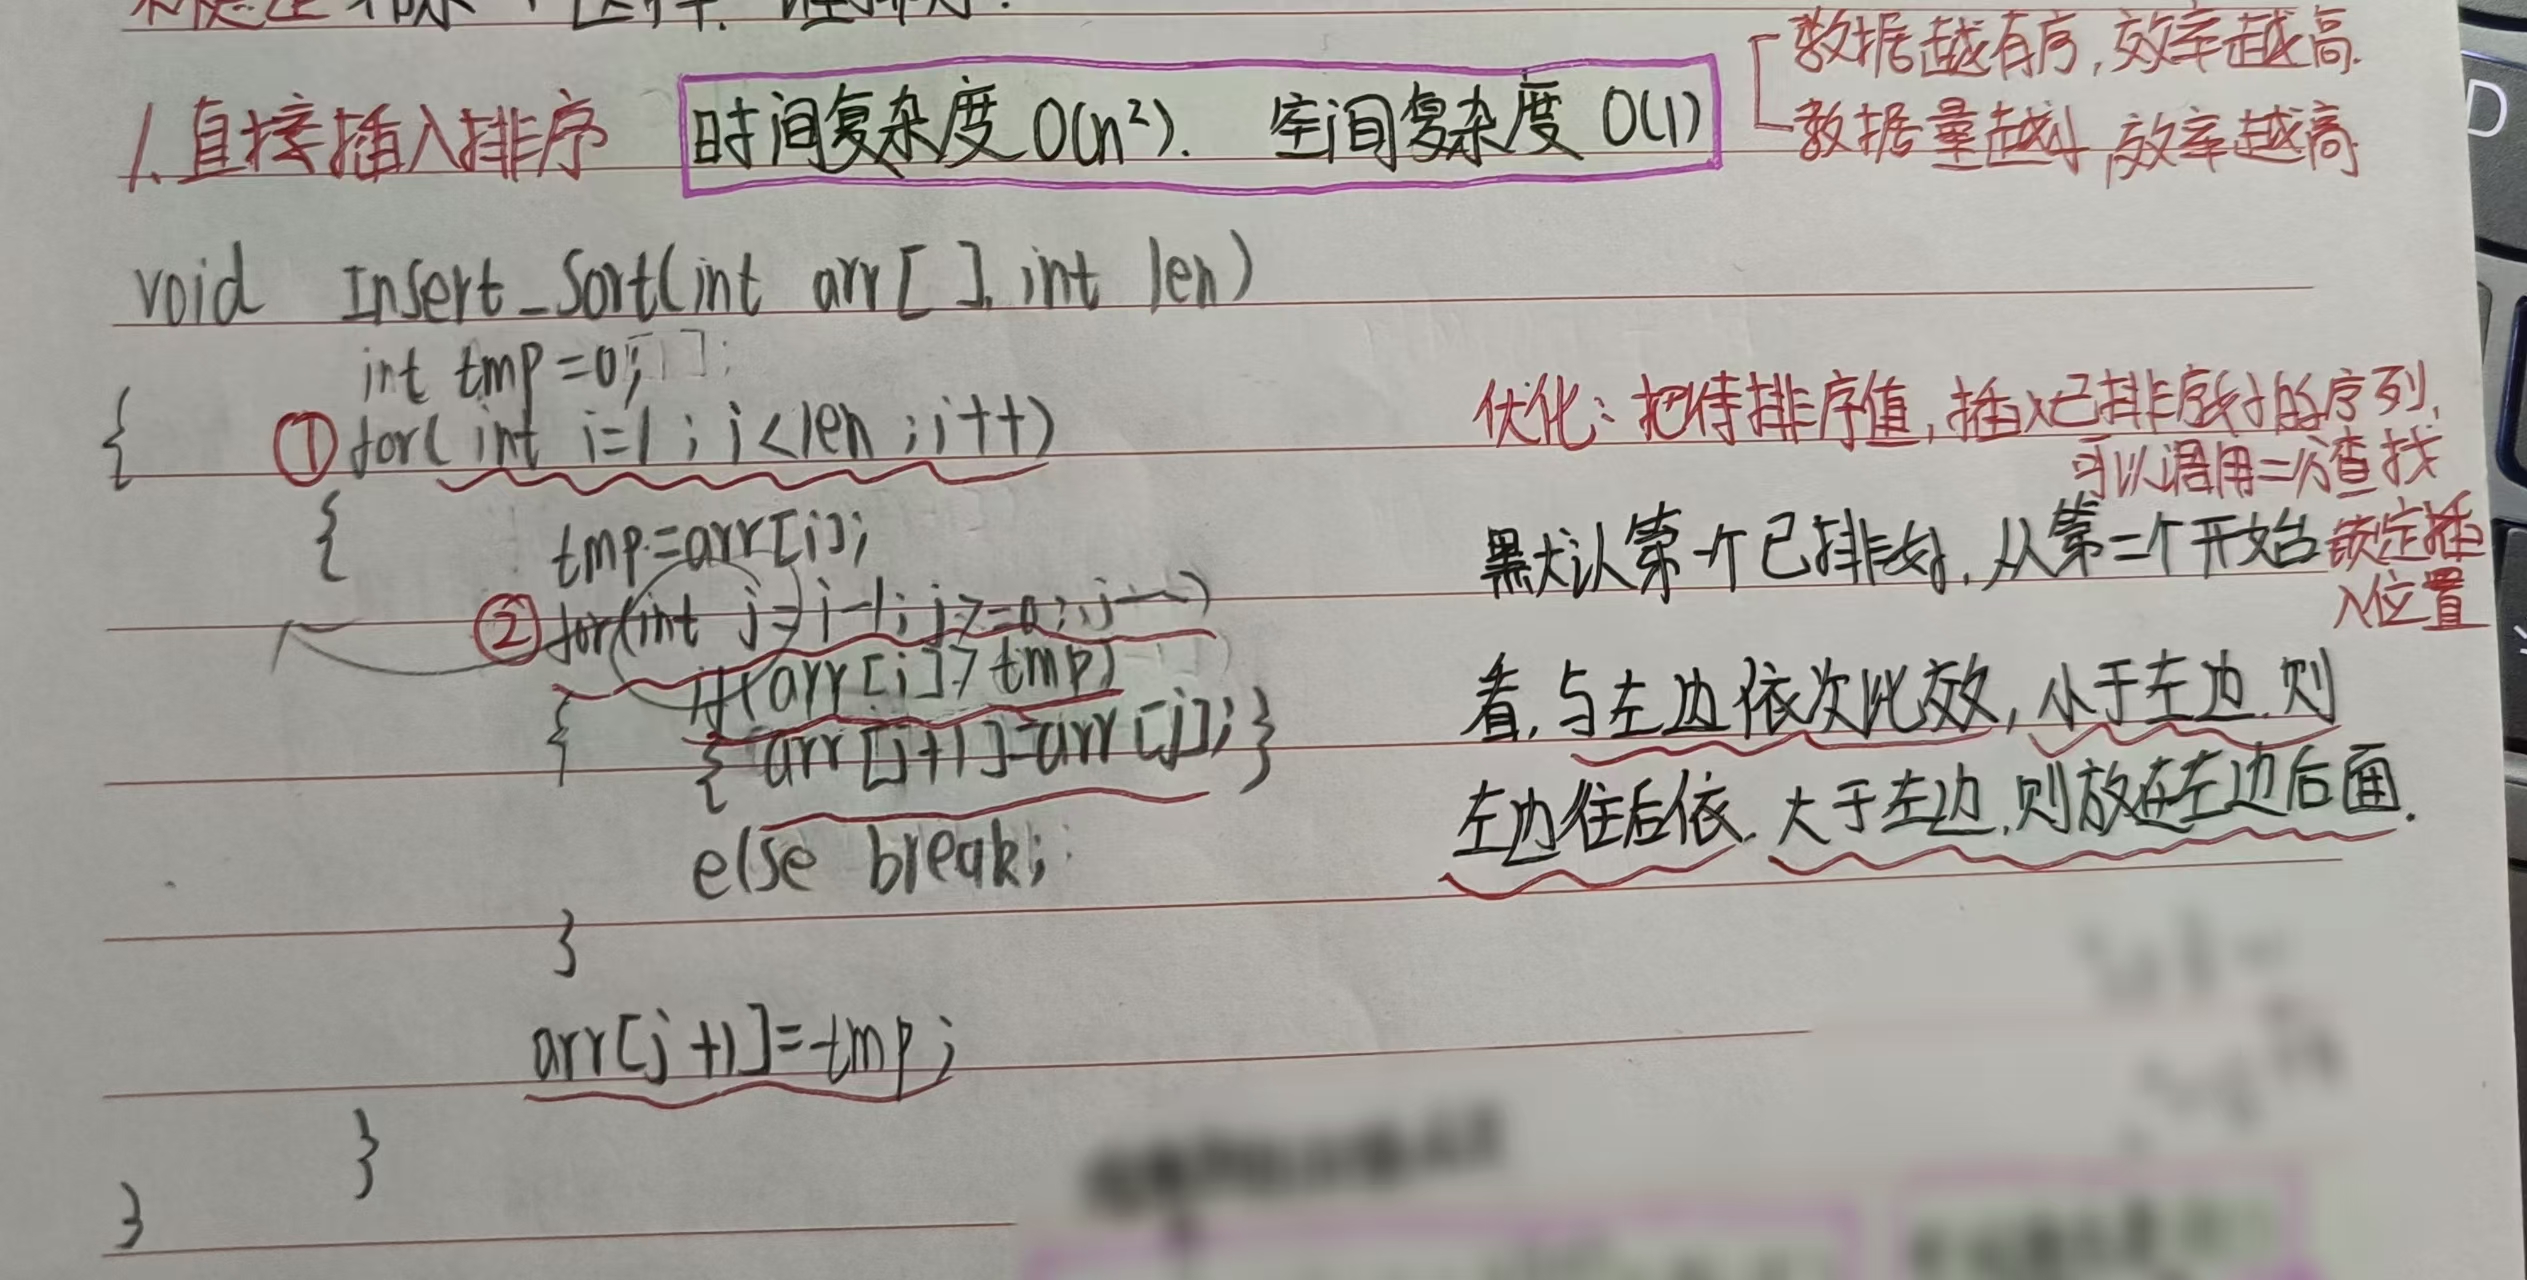 1.直接插入排序 时间复杂度 O(n²). 空间复杂度 O(1)
数据越有序,效率越高.
数据量越小,效率越高
void Insert_Sort(int arr[ ], int len)
int tmp=0;
{ ①for( int i=1; i<len ; i++)
{ tmp=arr[i];
②for(int j=i-1; j>=0; j--)
{ if(arr[j]>tmp)
{ arr[j+1]=arr[j]; }
else break;
}
arr[j+1]=tmp;
}
}
优化：把待排序值,插入已排序好的序列,
可以调用二分查找
锁定插
入位置
默认第一个已排好,从第二个开始
看,与左边依次比效,小于左边.则
左边往后依.大于左边,则放在左边后面.
D